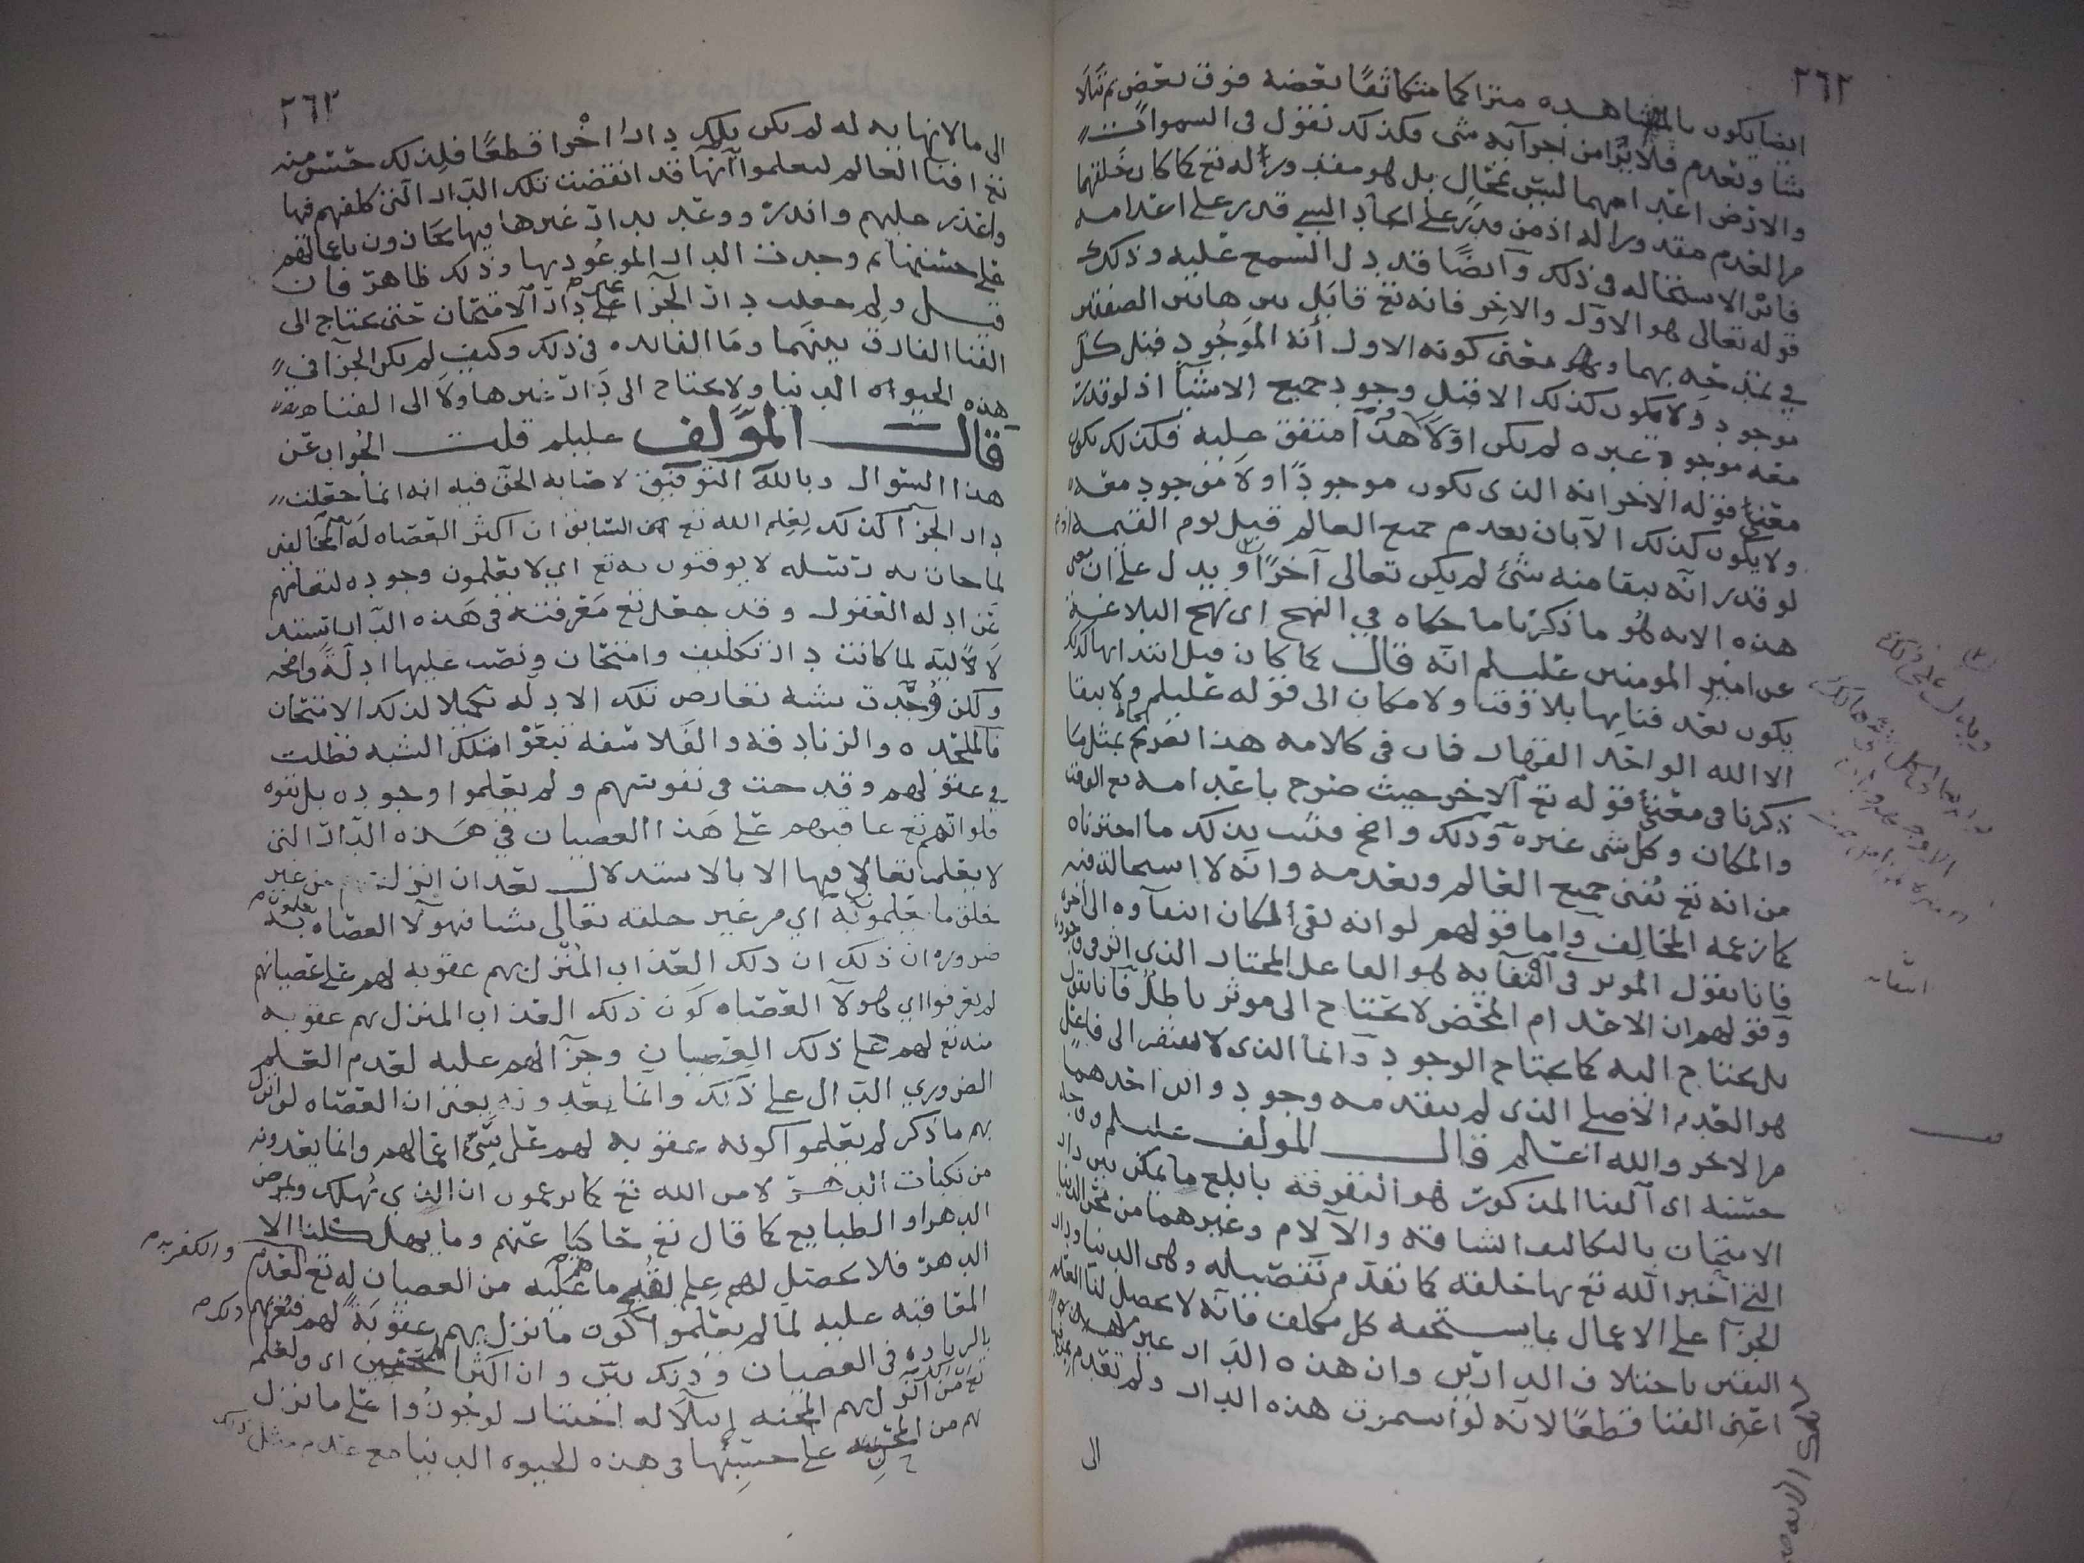 ٢٦٢
ايضا يكون بالمشاهده متراكما متكاثفا بعضه فوق بعض ثم تتلا
شا وتعدم فلا يرا من اجرآيه شي فكذلك نقول في السموات
والارض اعدامهما ليس بمحال بل هو مقدور له تع كما كان خلقهما
من العدم مقدورا له اذ من قدر على ايجاد الشي قدر على اعدامه
فاثر الاستحاله في ذلك وايضا قد دل السمع عليه وذلك
قوله تعالى هو الاول والاخر فانه تع قابل بين هاتين الصفتين
في تمدحه بهما وهو معنى كونه الاول أنه الموجود قبل كل
موجود ولا يكون كذلك الا قبل وجود جميع الاشيآ اذ لو قدر
معه موجود غيره لم يكن اوّلا هذآ متفق عليه فكذلك يكون
معنى قوله الاخر انه الذي يكون موجودًا ولا موجود معه
ولا يكون كذلك الا بان يعدم جميع العالم قبل يوم القيمه
لو قدر انّه يبقا منه شئ لم يكن تعالى آخرًا ويدل على ان معنى
هذه الايه هُو ما ذكرنا ما حكاه في النهج اى نهج البلاغه
عن امير المومنين عليلم انّه قال كما كان قبل ابتدايها كذلك
يكون بعد فنايها بلا وقت ولا مكان الى قوله عليلم ولا يبقا
الا الله الواحد القهار فان في كلامه هذا تصريح بمثل ما
ذكرنا في معنى قوله تع الآخر حيث صرح باعدامه تع الوقت
والمكان وكل شي غيره وذلك واضح فثبت بذلك ما اخترناه
من انه تع يُفني جميع العالم ويعدمه وانّه لا استحاله فيه
كما زعمه المخالف واما قولهم لو انه بقي لكان انتفآوه الى اخره
فانا نقول الموثر في انتفآيه هو الفاعل المختار الذي اثر في وجوده
وقولهم ان الاعدام المحض لا يحتاج الى موثر باطل فانا نقول
بل يحتاج اليه كما يحتاج الوجود وانما الذي لا يفتقر الى فاعل
هو العدم الأصلي الذي لم يتقدمه وجود واين احدهما
من الاخر والله اعلم قال المولف عليلم ووجه
حسنه اى آلفنا المذكور هو التفرقه بابلغ ما يمكن بين دار
الامتحان بالتكاليف الشاقه والآلام وغيرهما من محن الدنيا
التي اخبر الله تع بها خلقه كما تقدّم تفصيله وهى الدنيا ودار
الجزآ على الاعمال بما يستحقه كل مكلف فانّه لا يحصل لنا العلم
اليقين باختلاف الدارين وان هذه الدار غير
اعنى الفنا قطعًا لانّه لو استمرت هذه الدار ولم تعدم
الى
انتفايه
٢٦٣
الى ما لا نهايه له لم يكن يلك دارا اخرا قطعًا فلذلك حسن منه
تع افنا العالم ليعلموا أنّها قد انقضت تلك الدار التى كلفهم فيها
واعذر عليهم وانذر ووعد بدار غيرها فيها يجازون باعمالهم
على حسنها ثم وجدت الدار الموعود بها وذلك ظاهر فان
قيل ولم جعلت دار الجزا غير دار الامتحان حتى يحتاج الى
الفنا الفارق بينهما وما الفائده في ذلك وكيف لم يكن الجزآ في
هذه الحيواه الدنيا ولا يحتاج الى دار غيرها ولا الى الفنا
قال المؤلف عليلم قلت الجواب عن
هذا السوال وبالله التوفيق لاصابه الحق فيه انه انما جعلت
دار الجزآ كذلك لعلم الله تع السابق ان اكثر العصاه له المخالفين
لما جات به رسله لا يوقنون به تع اي لا يعلمون وجوده لتعاميهم
عن ادله العقول وقد جعل تع معرفته في هذه الدار استد
لاليه لما كانت دار تكليف وامتحان ونصب عليها ادلّة واضحه
ولكن وُجِدت شبه تعارض تلك الادله تكميلا لذلك الامتحان
فالملحده والزنادقه والفلاسفه تبعوا تلك الشبه فظلت
في عقولهم وقدحت في نفوسهم ولم يعلموا وجوده بل نفوه
فلو انهم تع عاقبهم على هذا العصيان في هذه الدار التى
لا يعلم تعالى فيها الا بالاستدلال بعد ان انزل من غير
خلق ما يعلمونه اي من غير خلقه تعالى بشا فهولا العصاه به
ضروره ان ذلك ان ذلك العذاب المُنْزل بهم عقوبه لهم على عصيانهم
لم يعرفوا اي هولآ العصاه كون ذلك العذاب المنزل بهم عقوبه
منه تع لهم على ذلك العصيان وجزآ لهم عليه لعدم العلم
الضروري الدال على ذلك وانما يعدونه يعني ان العصاه لو انزل
بهم ما ذكر لم يعلموا كونه عقوبه لهم على سيّئ اعمالهم وانما يعدونه
من نكبات الدهر لا من الله تع كما يزعمون ان الذى يُهلك ويمرض
الدهر او الطبايع كما قال تع حاكيا عنهم وما يهلكنا الا
الدهر فلا يحصل لهم علم بقبح ما هم عليه من العصيان له تع لعدم
المعاقبه عليه لما لم يعلموا كون ما نزل بهم عقوبة لهم
بالزياده في العصيان وذلك بيّن وان اكثر اى ولعلم
تع من انزل بهم المحنه ابتلآ له اختبار لو جُوزوا على ما نزل
بهم من المحن على حسبها في هذه الحيوه الدنيا مع عدم مثل ذلك
والكفر به